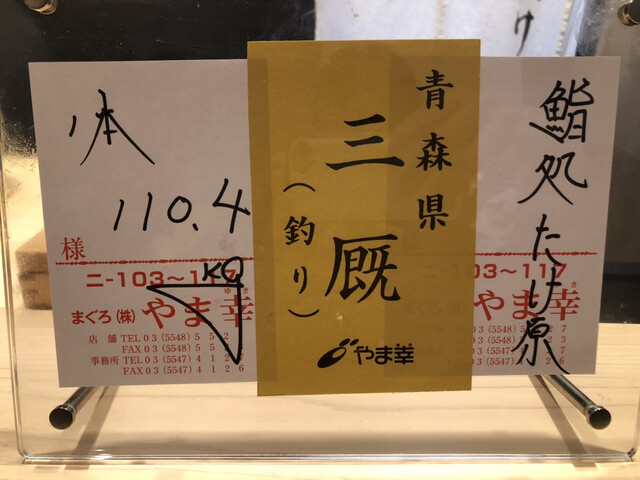 1本
110.4
KG
様
ニ-103〜117
まぐろ(株)やま幸
店 舗 TEL 03 (5548) 5 5 2
FAX 03 (5548) 5 5
事務所 TEL 03 (5547) 4 1 2
FAX 03 (5547) 4 1 2 6
青森県
三厩
(釣り)
やま幸
鮨処 たけ原
-103〜117
やま幸
2 7
2 3
2 7
2 6
け